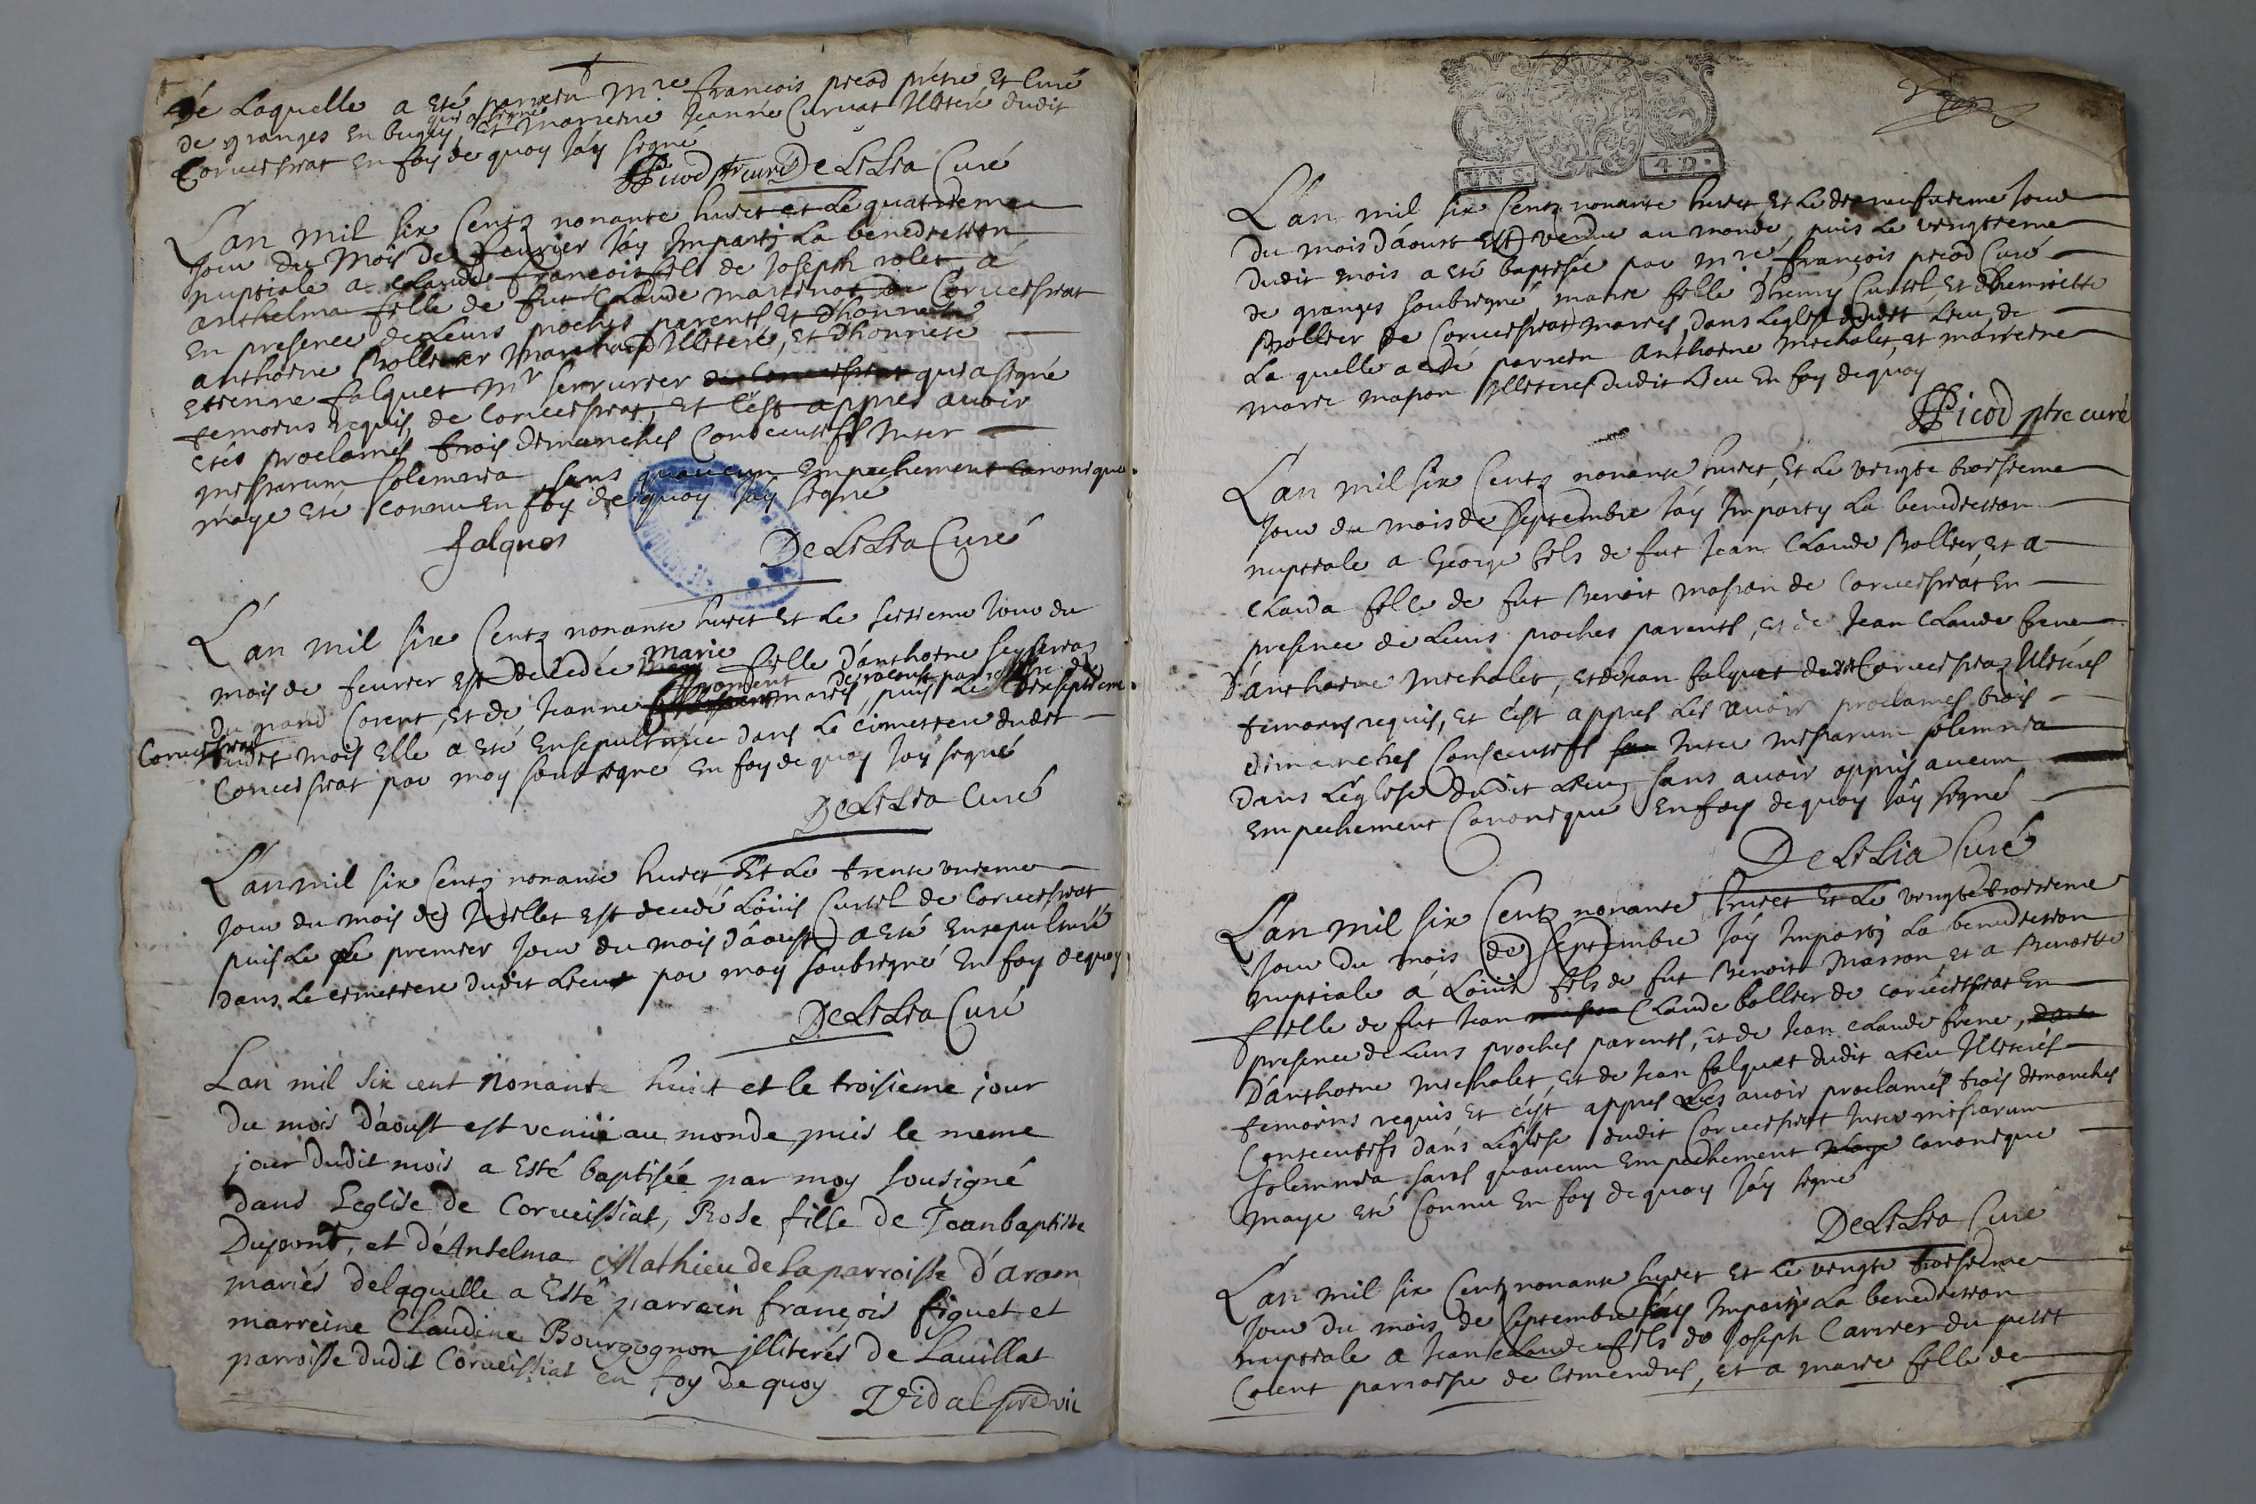 de Laquelle a eté parrein Mre françois picod prêtre et Curé
de granges en bugey, qui a signé et marreine jeanne Curvat Illiteré dudit
Corveissiat en foy de quoy Jáy signé
Picod ptre curé DeLiLia Curé
L'an mil six Centz nonante huict et Le quatrieme
jour du Mois De feurier Jáy Imparty La benediction
nuptiale a Claude françois fils de Joseph rolet a
anthelma fille de fut Claude martinot de Corveissiat
en presence de Leurs proches parents Et Dhonnete
anthoine Bollier marchand Illiteré, et Dhonnete
etienne falquet Mr serrurier de Corveissiat qui a signé
temoins requis, de Corveissiat, et c'est appres avoir
etés proclamés trois dimanches Consecutifs Inter
missarum solemnia sans quaucun Empechement canonique
m'aye eté connu en foy de quoy Jáy signé
falquet
DeLiLia Curé
L'án mil six Centz nonante huict et Le seitieme Jour du
mois de feurier est decedée marie fille d'anthoine
du grand Corent, et de Jeanne mariés, puis Le Dixseptieme
Corveissiat dudit mois Elle a eté Ensepulturée dans Le cimettiere dudit
Corveissiat par moy soubsigné en foy de quoy Jay signé
DeLiLia Curé
L'an mil six Centz nonante huict Et Le trente unieme
Jour du mois de Juillet est decedé Loüis Curtil de Corveissiat
puis Le premier Jour du mois D'áoust a eté Ensepulturé
dans Le cimettiere dudit Lieu par moy soubsigné En foy dequoy
DeLiLia Curé
Lan mil six cent nonante huict et le troisieme jour
du mois d'áoust est venüe au monde puis le meme
jour dudit mois a esté baptisée par moy sousigné
dans Leglise de Corveissiat, Rose fille de Jeanbaptiste
Dupont, et d'éAntelma Mathieu de la parroisse d'árom
mariés delaquelle a Esté parrein françois figuet et
marreine Claudine Bourgognon jlliterés de Lavillat
parroisse dudit Corveissiat en foy de quoy
Vidal ptre vic
UNS. 4D.
L'án mil six Centz nonante huict, Et Le dixneufvieme Jour
du mois D'áoust est venüe au monde, puis Le vingtieme
dudit mois a eté baptisée par Mre françois picod Curé
de granges soubsigné marie fille D'henry Curtil, Et Dhenriette
Bollier De Corveissiat mariés, Dans Leglise dudit Lieu, de
La quelle a eté parrein anthoine Michalet, et marreine
marie masson Jlliterés dudit Lieu en foy dequoy
Picod ptre curé
L'án mil six Centz nonante huict, Et Le vingte troisieme
Jour du mois de Septembre Jáy Imparty La benediction
nuptiale a George fils de fut Jean Claude Bollier, et a
Clauda fille de fut Benoit masson de Corveissiat En
presence de Leurs proches parents, et de Jean Claude frene
D'ánthoine Michalet, et de Jean falquet dudit Corveissiat Illiterés
temoins requis, et c'est appres Les avoir proclamés trois
dimanches Consecutifs Inter missarum solemnia
dans L'églese dudit Lieu, sans avoir appris aucun
Empechement Canonique En foy de quoy Jáy signé
DeLiLia Curé
L'an mil six Centz nonante huict et Le vingte troisieme
Jour du mois de septembre Jáy Imparty La benediction
nuptiale á Loüis fils de fut Benoit Masson et a Benoitte
fille de fut Jean Claude bollier de corveissiat En
presence de Leurs proches parents, et de Jean Claude frene,
D'anthoine Michalet, et de Jean falquet dudit Lieu Illiterés
temoins requis et c'ést appres Les avoir proclamés trois dimanches
Consecutifs dans L'église dudit Corveissiat Inter missarum
solemnia sans quaucun Empechement canonique
maye eté Connu en foy de quoy Jáy signé
DeLiLia Curé
L'án mil six Centz nonante huict et Le vingte troisieme
Jour du mois de Septembre Jáy Imparty La benediction
nuptiale a Jean Claude fils de Joseph Carrier du petit
Corent parroisse de Cimandres, et a marie fille de